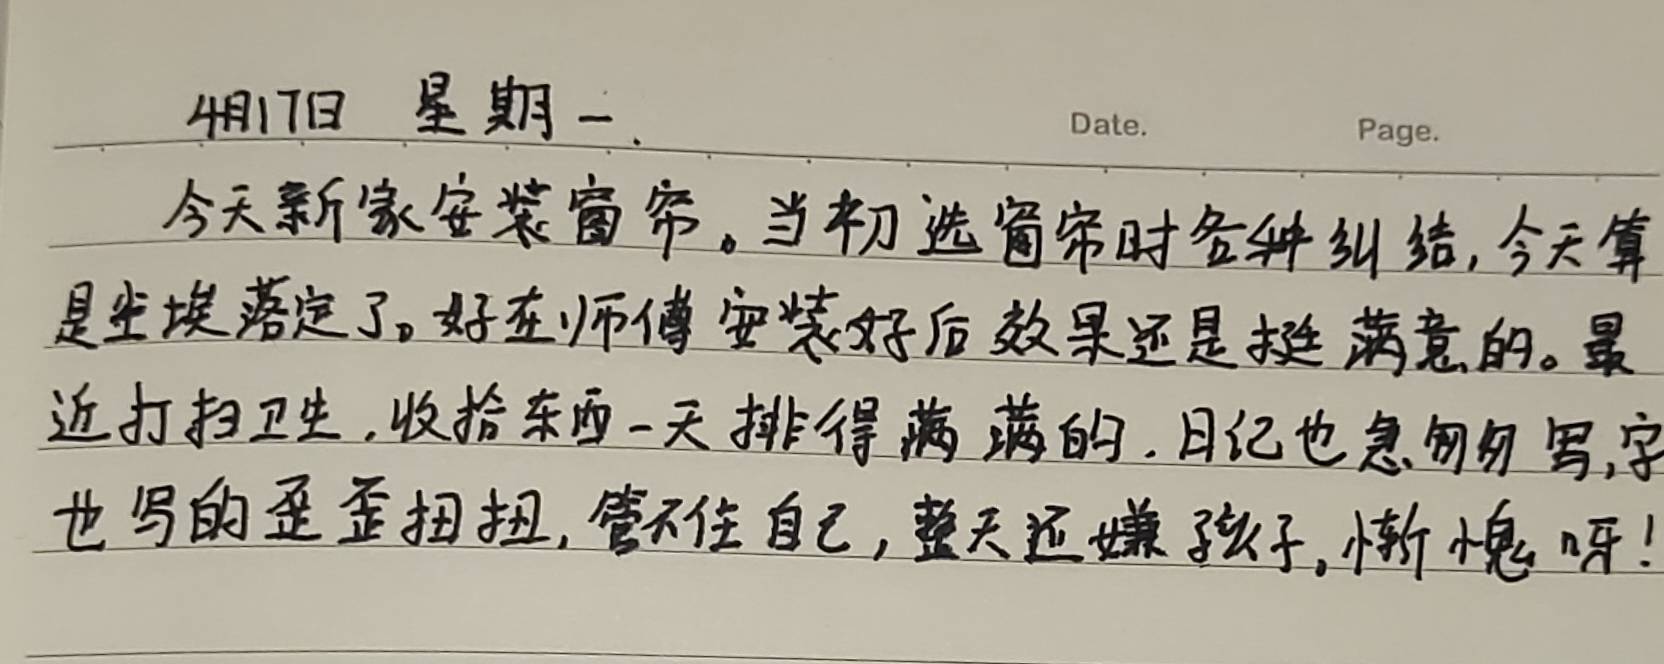 4月17日 星期一.
Date. Page.
今天新家安装窗帘。当初选窗帘时各种纠结,今天算
是尘埃落定了。好在师傅安装好后效果还是挺满意的。最
近打扫卫生,收拾东西一天排得满满的.日记也急匆匆写,字
也写的歪歪扭扭,管不住自己,整天还嫌孩子。惭愧呀!